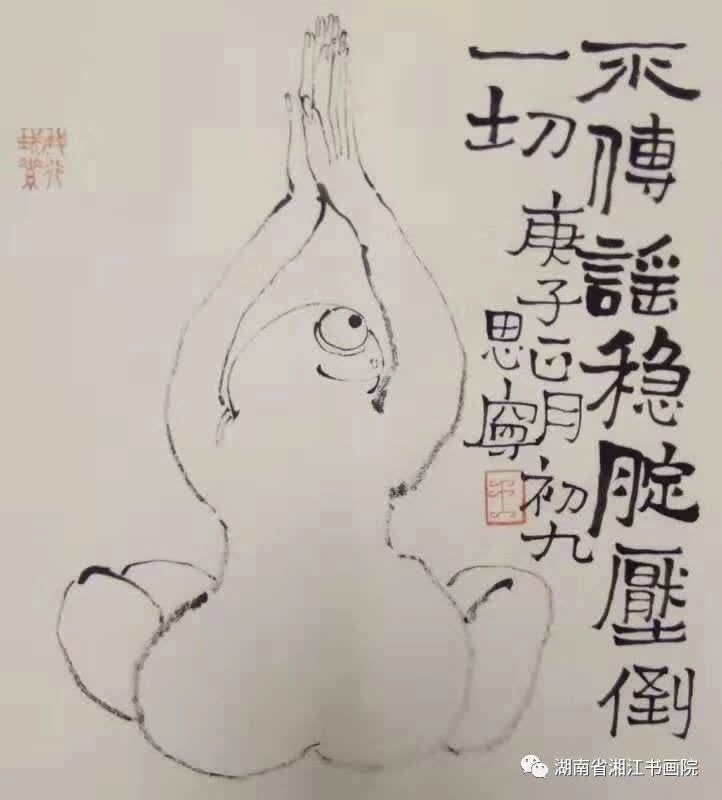 不傳謠稳腚壓倒
一切
庚子正月初九
思寧
湖南省湘江书画院